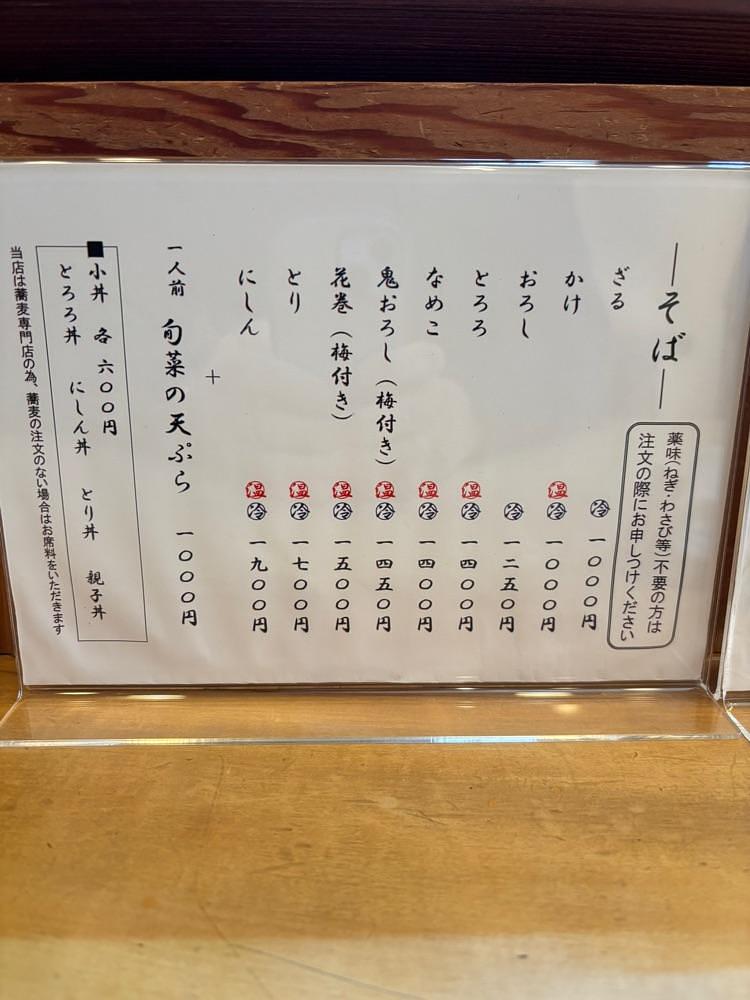 ―そば―
薬味(ねぎ・わさび等)不要の方は
注文の際にお申しつけください
ざる 冷 一〇〇〇円
かけ 温 冷 一〇〇〇円
おろし 冷 一二五〇円
とろろ 温 冷 一四〇〇円
なめこ 温 冷 一四〇〇円
鬼おろし(梅付き) 温 冷 一四五〇円
花巻(梅付き) 温 冷 一五〇〇円
とり 温 冷 一七〇〇円
にしん 温 冷 一九〇〇円
+
一人前 旬菜の天ぷら 一〇〇〇円
■小丼 各 六〇〇円
とろろ丼 にしん丼 とり丼 親子丼
当店は蕎麦専門店の為、蕎麦の注文のない場合はお席料をいただきます